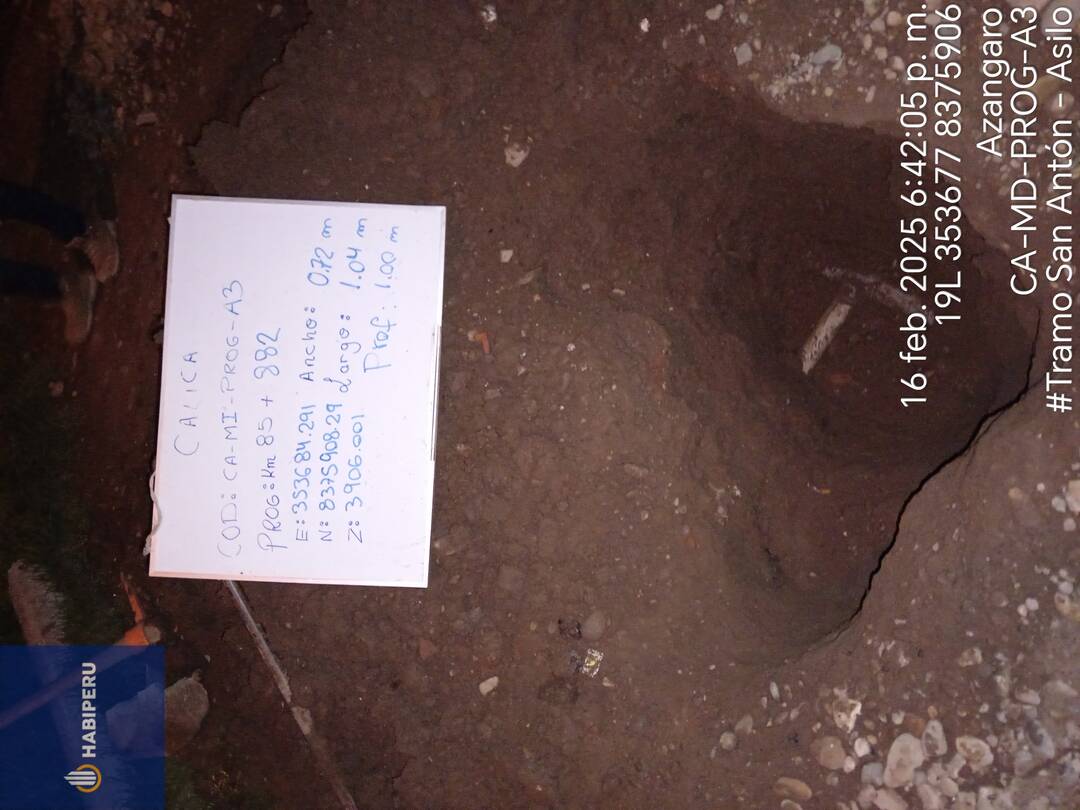 HABIPERU
CALICA
COD: CA-MI-PROG-A3
PROG: Km 85 + 882
E: 353684.291 Ancho: 0.72 m
N: 8375908.29 Largo: 1.04 m
Z: 3906.001 Prof: 1.00 m
16 feb. 2025 6:42:05 p. m.
19L 353677 8375906
Azangaro
CA-MD-PROG-A3
#Tramo San Antón - Asilo